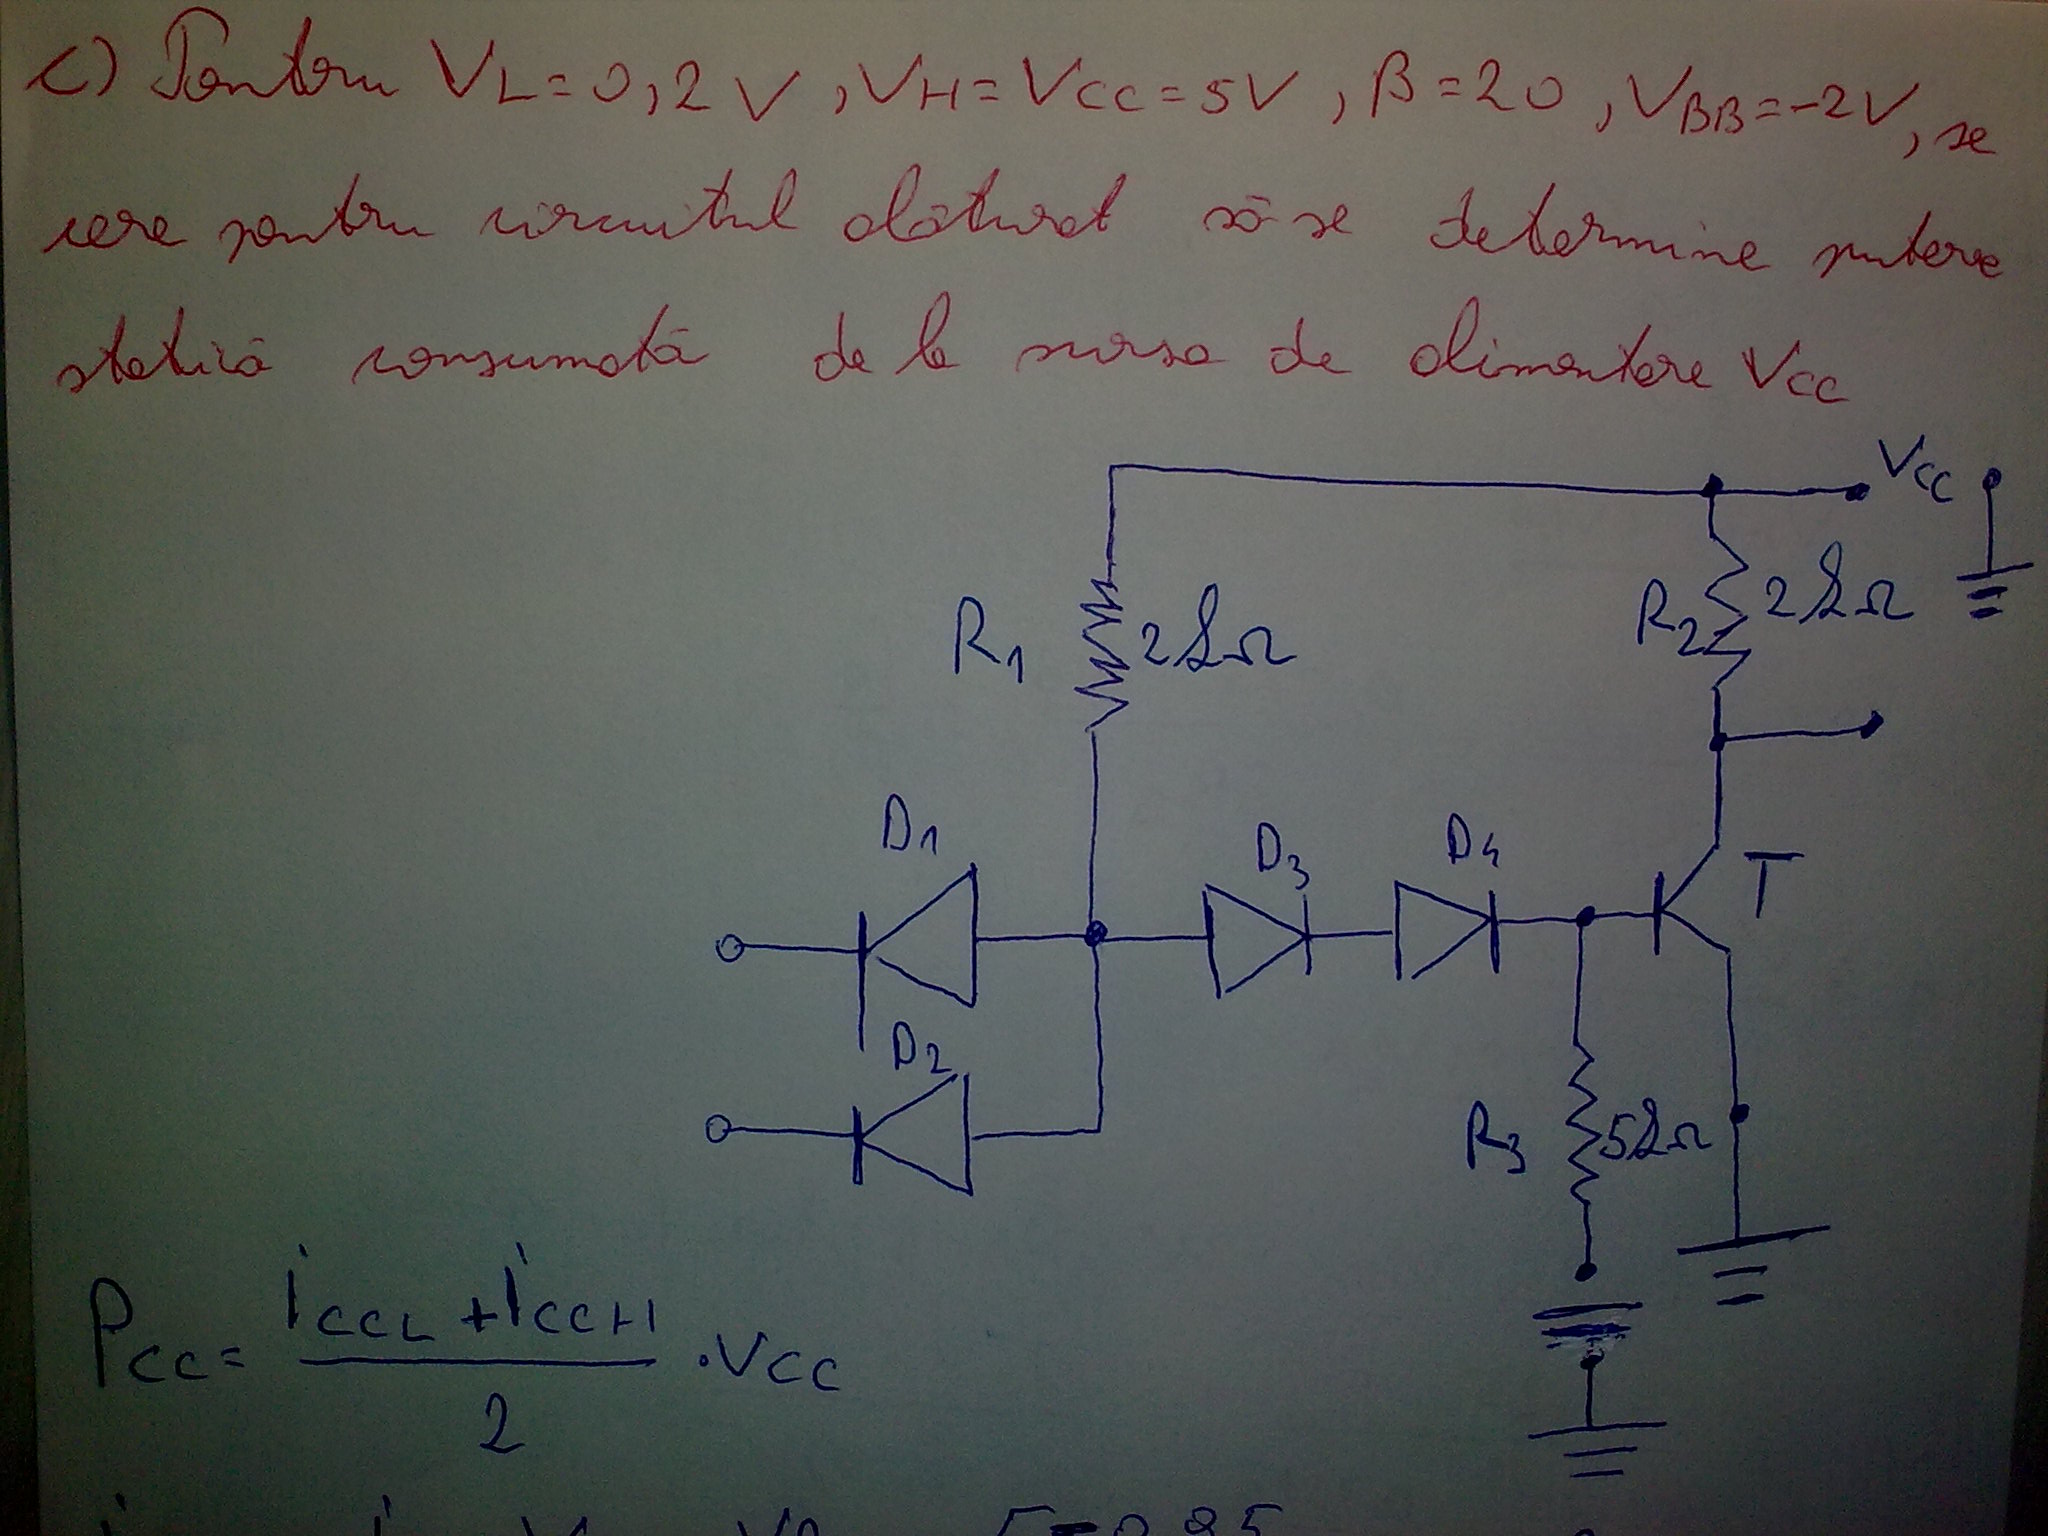 c) Pentru VL=0,2V, VH=VCC=5V, β=20, VBB=-2V, se
cere pentru circuitul alăturat să se determine putere
statică consumată de la sursa de alimentare VCC
VCC
R1 2kΩ
R2 2kΩ
D1
D3
D4
T
D2
R3 5kΩ
PCC= iCCL+iCCH
2
·VCC